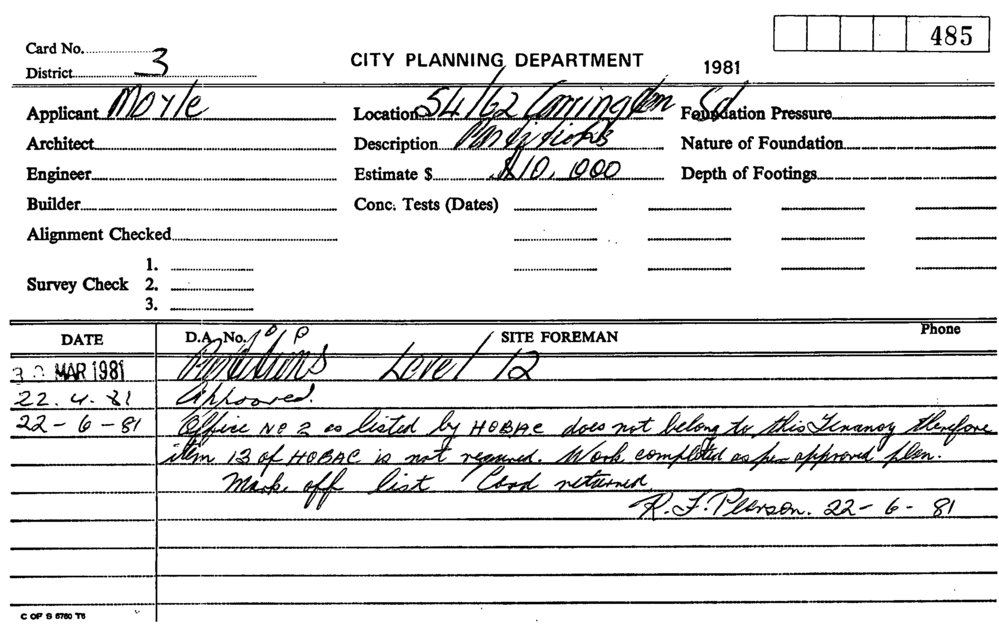 485
Card No. 3
District
CITY PLANNING DEPARTMENT
1981
Applicant Moyle
Location 54/62 Carrington St
Foundation Pressure
Architect
Description Partitions
Nature of Foundation
Engineer
Estimate $ $10,000
Depth of Footings
Builder
Conc. Tests (Dates)
Alignment Checked
Survey Check
1.
2.
3.
DATE
D.A. No. SITE FOREMAN
Phone
O/P
30 MAR 1981 Partitions Level 12
22.4.81 Approved.
22-6-81 Office No 2 as listed by HOBAC does not belong to this Tenancy therefore
item 13 of HOBAC is not required. Work completed as per approved plan.
Mark off list Card returned
R.F. Pearson. 22-6-81
C OF S 6760 T6